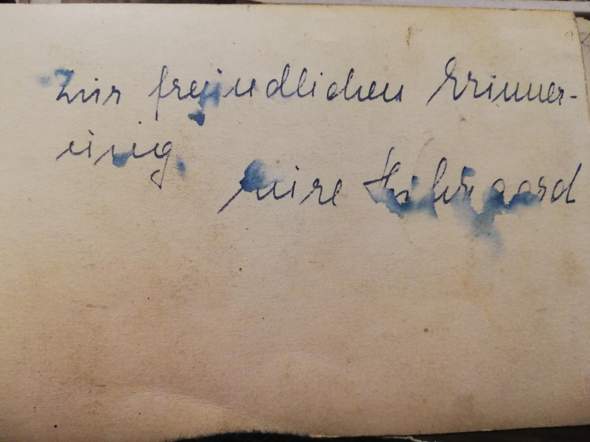 Zur freundlichen Erinner-
ung.
Eure Hildegard